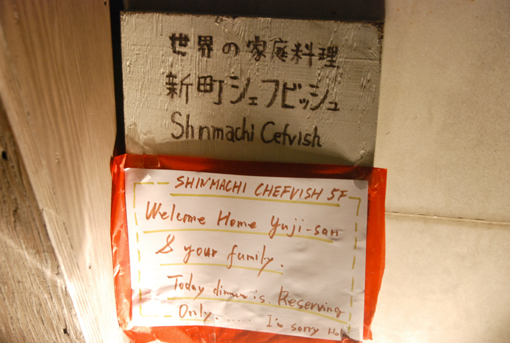 世界の家庭料理
新町シェフビッシュ
Shnmachi Cefvish
SHINMACHI CHEFVISH 5F
Welcome Home Yuji-san
& your family.
Today dinner is Reserving
Only....... I'm sorry